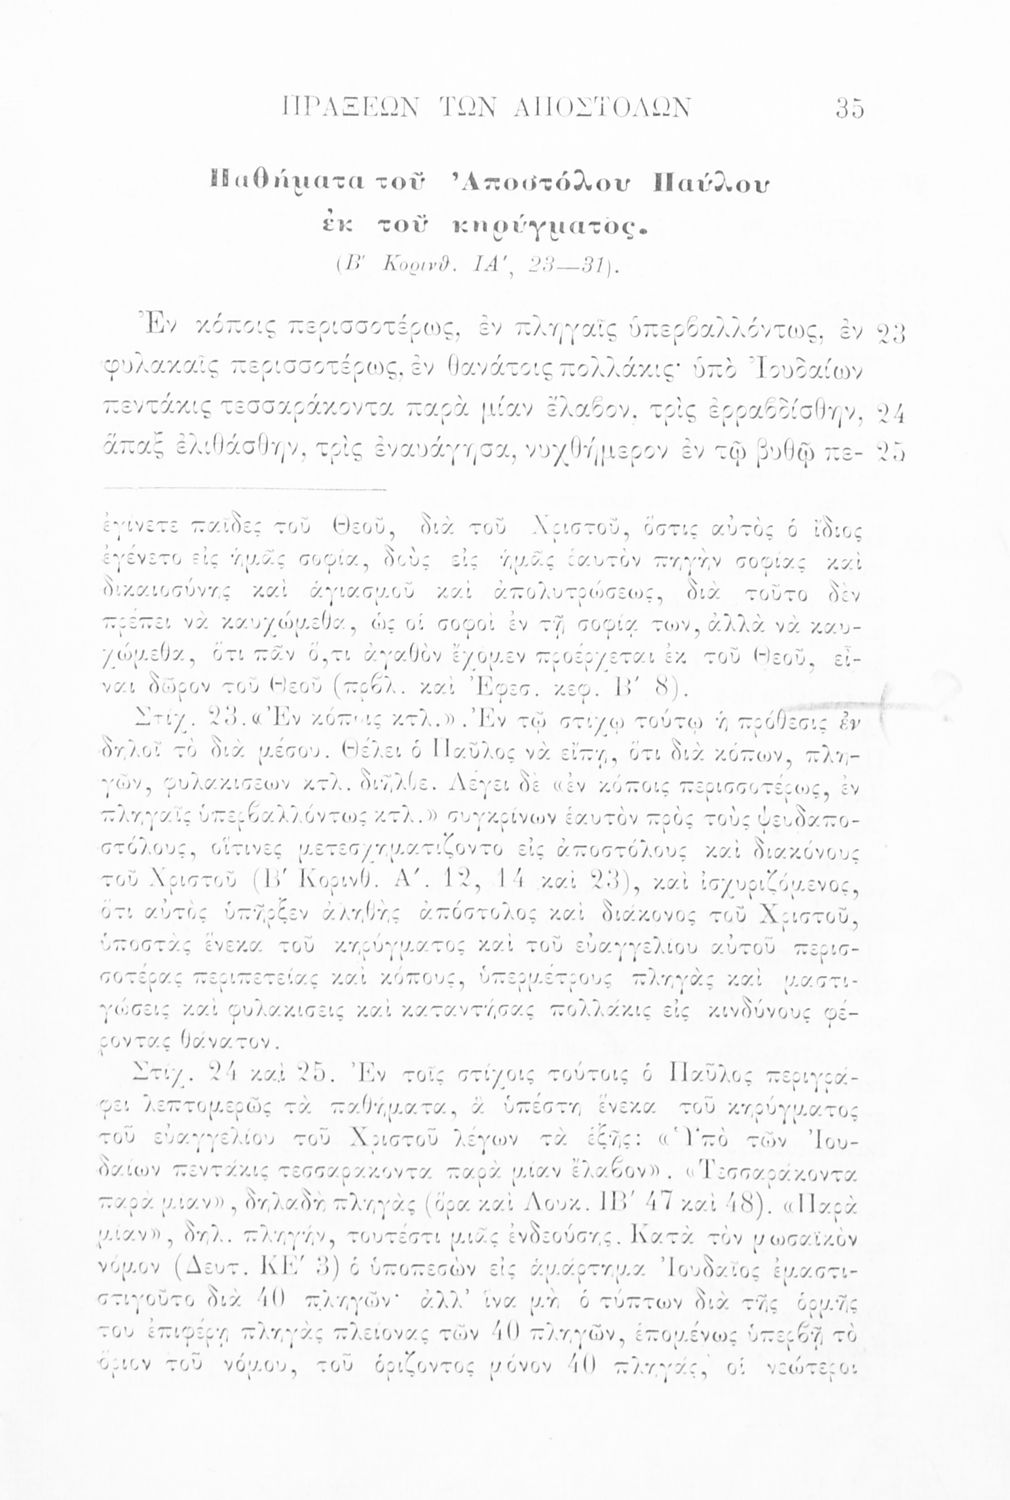 ΠΡΑΞΕΩΝ ΤΩΝ ΑΠΟΣΤΟΛΩΝ 35
Παθήματα τοῦ Ἀποστόλου Παύλου
ἐκ τοῦ κηρύγματος.
(Β' Κορινθ. ΙΑ', 23—31).
Ἐν κόποις περισσοτέρως, ἐν πληγαῖς ὑπερβαλλόντως, ἐν 23
φυλακαῖς περισσοτέρως, ἐν θανάτοις πολλάκις· ὑπὸ Ἰουδαίων
πεντάκις τεσσαράκοντα παρὰ μίαν ἔλαβον, τρὶς ἐρραβδίσθην, 24
ἅπαξ ἐλιθάσθην, τρὶς ἐναυάγησα, νυχθήμερον ἐν τῷ βυθῷ πε- 25
ἐγίνετε παῖδες τοῦ Θεοῦ, διὰ τοῦ Χριστοῦ, ὅστις αὐτὸς ὁ ἴδιος
ἐγένετο εἰς ἡμᾶς σοφία, δοὺς εἰς ἡμᾶς ἑαυτὸν πηγὴν σοφίας καὶ
δικαιοσύνης καὶ ἁγιασμοῦ καὶ ἀπολυτρώσεως, διὰ τοῦτο δὲν
πρέπει νὰ καυχώμεθα, ὡς οἱ σοφοὶ ἐν τῇ σοφίᾳ των, ἀλλὰ νὰ καυ-
χώμεθα, ὅτι πᾶν ὅ,τι ἀγαθὸν ἔχομεν προέρχεται ἐκ τοῦ Θεοῦ, εἶ-
ναι δῶρον τοῦ Θεοῦ (πρβλ. καὶ Ἐφεσ. κεφ. Β' 8).
Στίχ. 23. «Ἐν κόποις κτλ.». Ἐν τῷ στίχῳ τούτῳ ἡ πρόθεσις ἐν
δηλοῖ τὸ διὰ μέσου. Θέλει ὁ Παῦλος νὰ εἴπῃ, ὅτι διὰ κόπων, πλη-
γῶν, φυλακίσεων κτλ. διῆλθε. Λέγει δὲ «ἐν κόποις περισσοτέρως, ἐν
πληγαῖς ὑπερβαλλόντως κτλ.» συγκρίνων ἑαυτὸν πρὸς τοὺς ψευδαπο-
στόλους, οἵτινες μετεσχηματίζοντο εἰς ἀποστόλους καὶ διακόνους
τοῦ Χριστοῦ (Β' Κορινθ. Α'. 12, 14 καὶ 23), καὶ ἰσχυριζόμενος,
ὅτι αὐτὸς ὑπῆρξεν ἀληθὴς ἀπόστολος καὶ διάκονος τοῦ Χριστοῦ,
ὑποστὰς ἕνεκα τοῦ κηρύγματος καὶ τοῦ εὐαγγελίου αὐτοῦ περισ-
σοτέρας περιπετείας καὶ κόπους, ὑπερμέτρους πληγὰς καὶ μαστι-
γώσεις καὶ φυλακίσεις καὶ καταντήσας πολλάκις εἰς κινδύνους φέ-
ροντας θάνατον.
Στίχ. 24 καὶ 25. Ἐν τοῖς στίχοις τούτοις ὁ Παῦλος περιγρά-
φει λεπτομερῶς τὰ παθήματα, ἃ ὑπέστη ἕνεκα τοῦ κηρύγματος
τοῦ εὐαγγελίου τοῦ Χριστοῦ λέγων τὰ ἑξῆς: «Ὑπὸ τῶν Ἰου-
δαίων πεντάκις τεσσαράκοντα παρὰ μίαν ἔλαβον». «Τεσσαράκοντα
παρὰ μίαν», δηλαδὴ πληγὰς (ὅρα καὶ Λουκ. ΙΒ' 47 καὶ 48). «Παρὰ
μίαν», δηλ. πληγήν, τουτέστι μιᾶς ἐνδεούσης. Κατὰ τὸν μωσαϊκὸν
νόμον (Δευτ. ΚΕ' 3) ὁ ὑποπεσὼν εἰς ἁμάρτημα Ἰουδαῖος ἐμαστι-
στιγοῦτο διὰ 40 πληγῶν· ἀλλ' ἵνα μὴ ὁ τύπτων διὰ τῆς ὁρμῆς
του ἐπιφέρῃ πληγὰς πλείονας τῶν 40 πληγῶν, ἑπομένως ὑπερβῇ τὸ
ὅριον τοῦ νόμου, τοῦ ὁρίζοντος μόνον 40 πληγάς, οἱ νεώτεροι